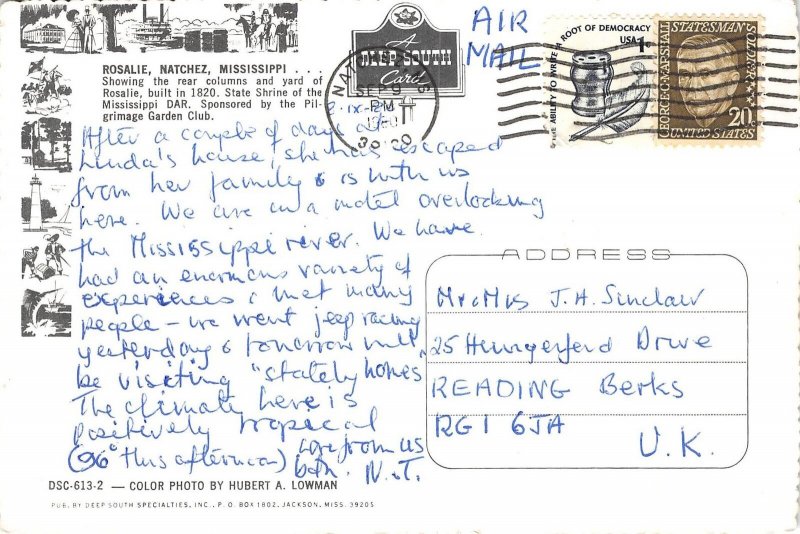 ROSALIE, NATCHEZ, MISSISSIPPI . . .
Showing the rear columns and yard of
Rosalie, built in 1820. State Shrine of the
Mississippi DAR. Sponsored by the Pil-
grimage Garden Club.
A
DEEP SOUTH
Card
AIR
MAIL
SEP 9
PM
ABILITY TO WRITE A ROOT OF DEMOCRACY
USA 1c
GEORGE C. MARSHALL STATESMAN SOLDIER
20c
UNITED STATES
After a couple of days at
Linda's house, she has escaped
from her family & is with us
here. We are in a motel overlooking
the Mississippi river. We have
had an enormous variety of
experiences & met many
people - we went jeep racing
yesterday & tomorrow will
be visiting "stately homes"
The climate here is
positively tropical
(96° this afternoon) love from us
both. N.T.
ADDRESS
Mr & Mrs J. H. Sinclair
25 Hungerford Drive
READING Berks
RG1 6JA
U.K.
DSC-613-2 — COLOR PHOTO BY HUBERT A. LOWMAN
PUB. BY DEEP SOUTH SPECIALTIES, INC., P. O. BOX 1802, JACKSON, MISS. 39205